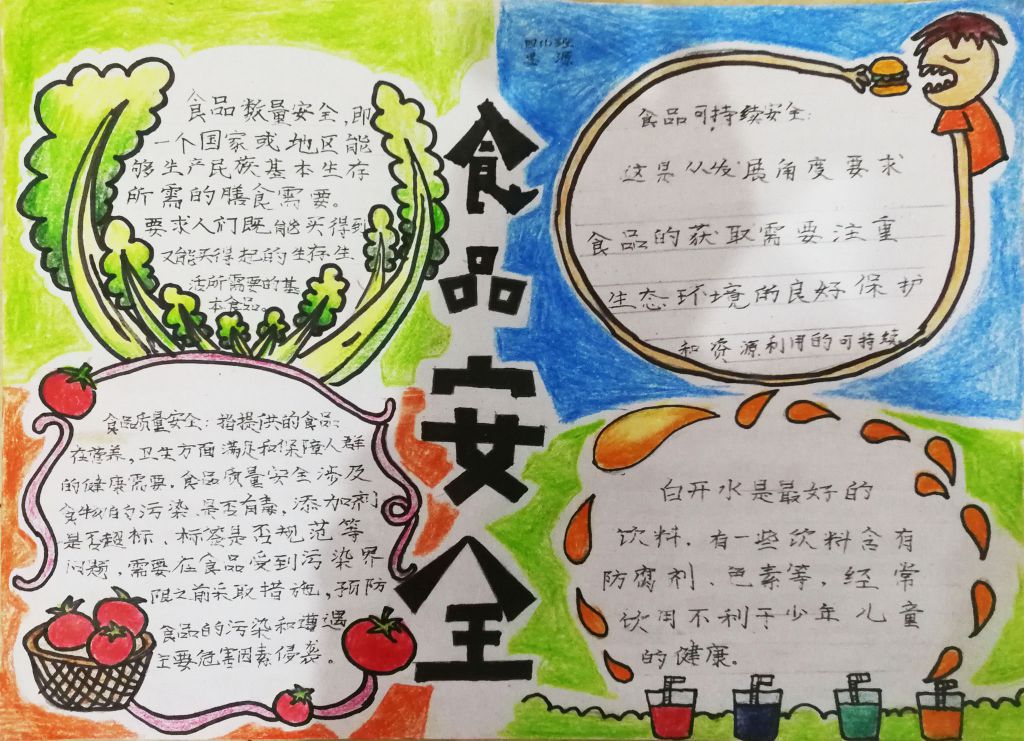 食品安全
食品数量安全,即
一个国家或地区能
够生产民族基本生存
所需的膳食需要。
要求人们既能买得到
又能买得起的生存生
活所需要的基
本食品。
食品可持续安全:
这是从发展角度要求
食品的获取需要注重
生态环境的良好保护
和资源利用的可持续。
食品质量安全:指提供的食品
在营养,卫生方面满足和保障人群
的健康需要,食品质量安全涉及
食物的污染、是否有毒,添加剂
是否超标、标签是否规范等
问题,需要在食品受到污染界
限之前采取措施,预防
食品的污染和遭遇
主要危害因素侵袭。
白开水是最好的
饮料.有一些饮料含有
防腐剂、色素等.经常
饮用不利于少年儿童
的健康。